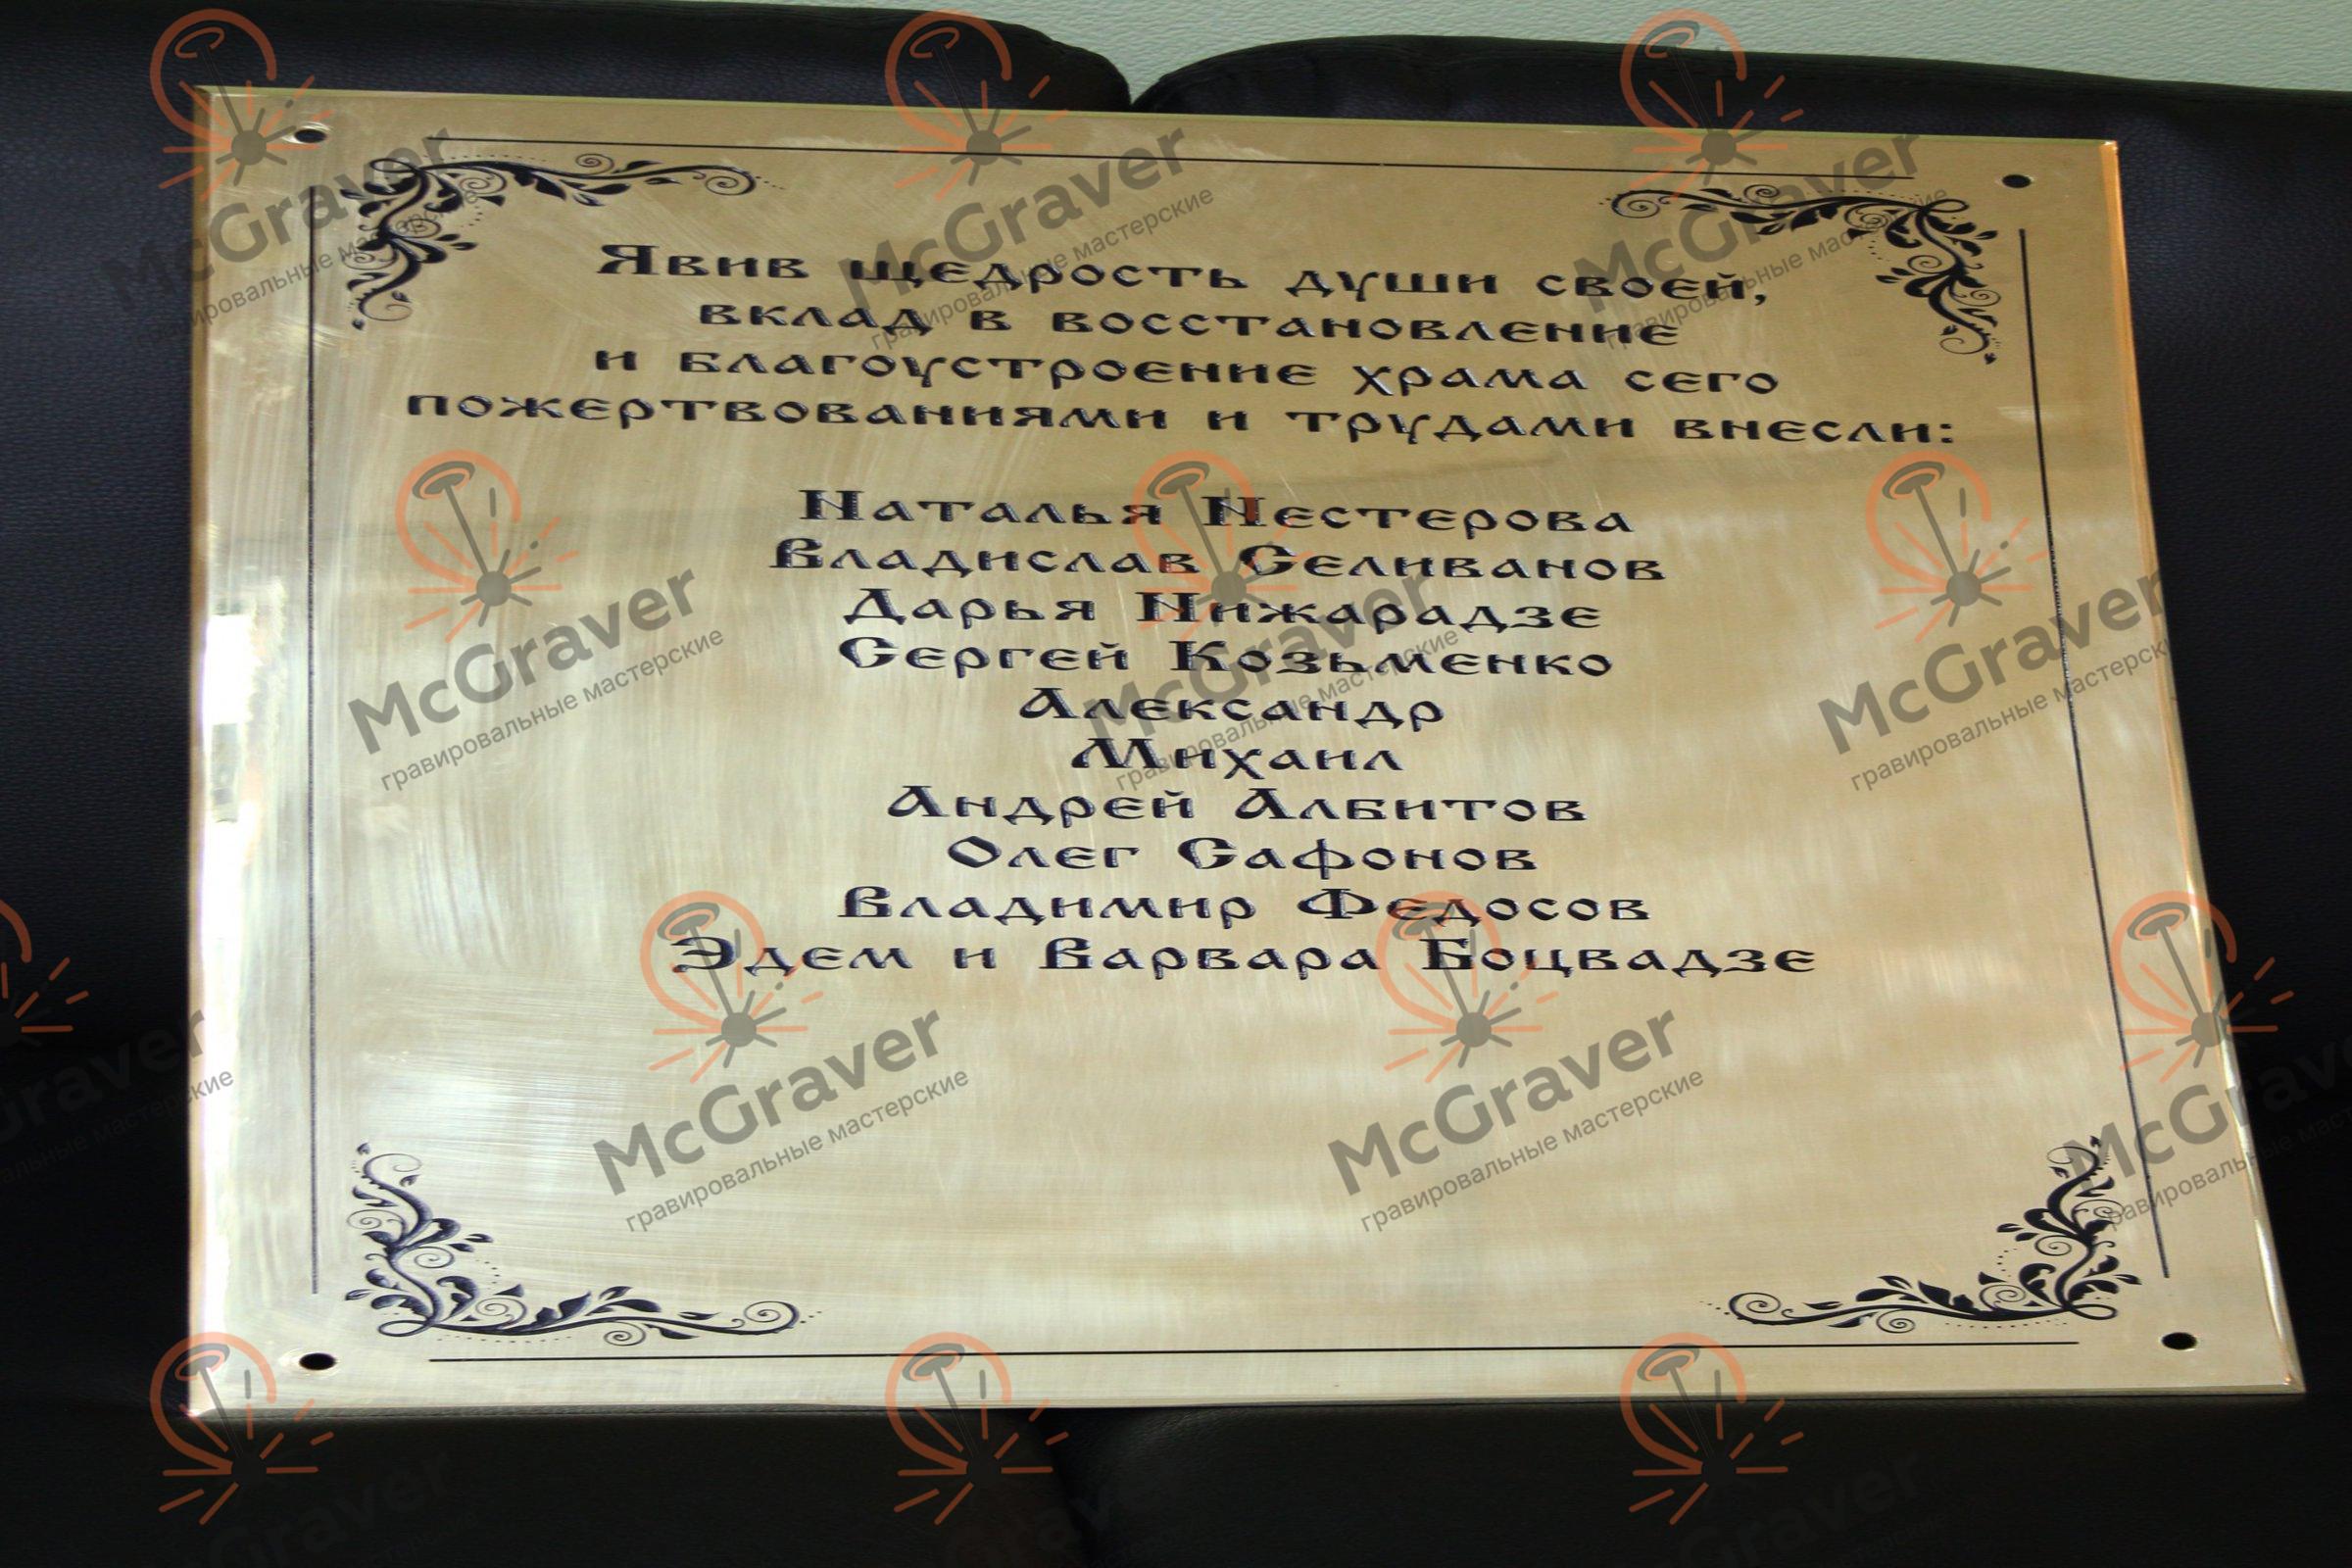 Явив щедрость души своей,
вклад в восстановление
и благоустроение храма сего
пожертвованиями и трудами внесли:
Наталья Нестерова
Владислав Селиванов
Дарья Нижарадзе
Сергей Козьменко
Александр
Михаил
Андрей Албитов
Олег Сафонов
Владимир Федосов
Эдем и Варвара Боцвадзе
McGraver
гравировальные мастерские